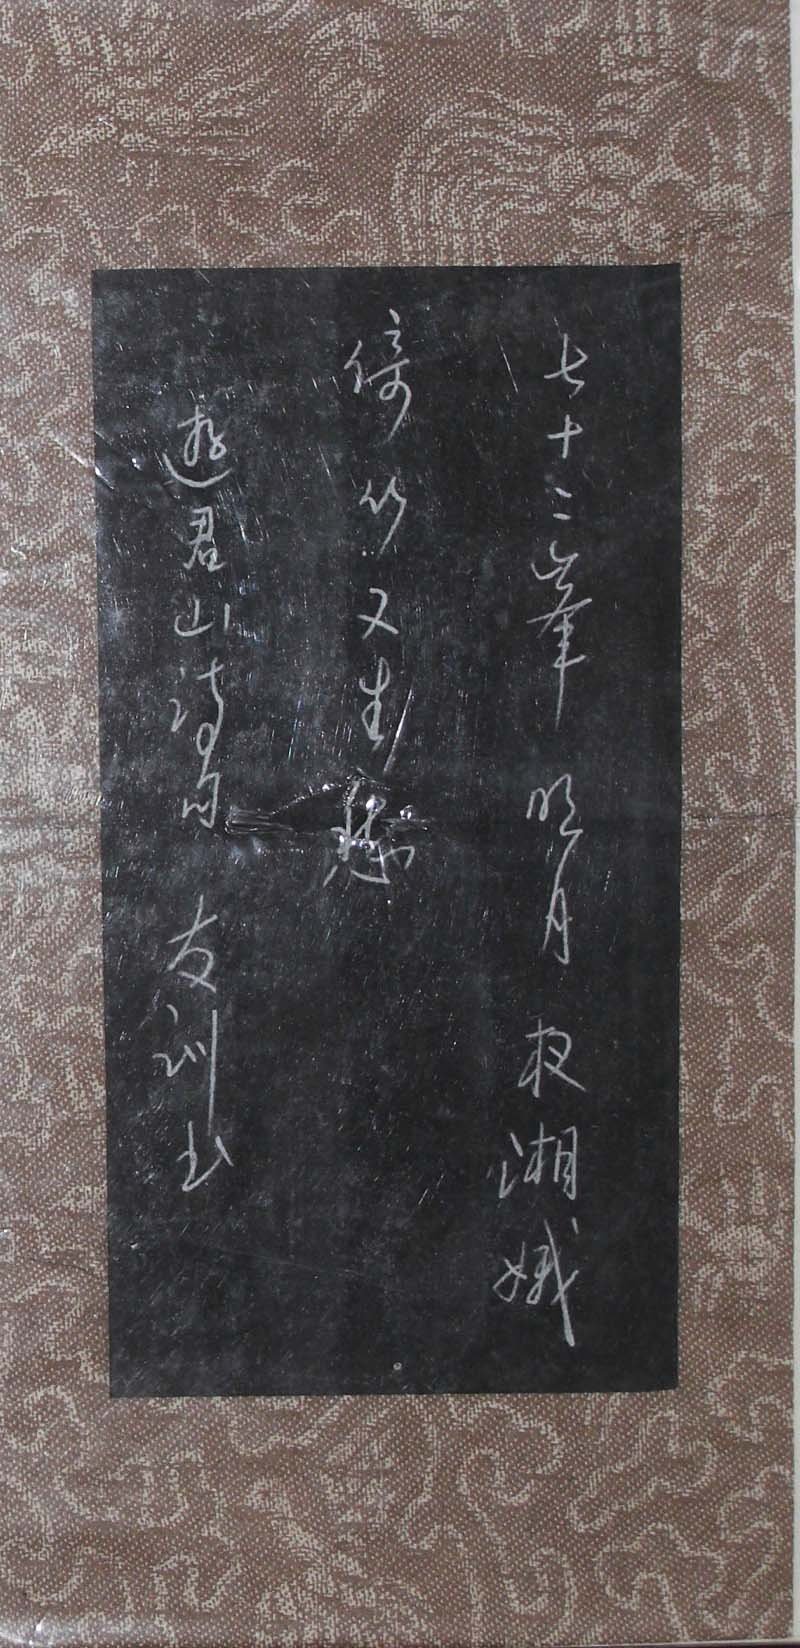 七十二峯明月夜湘娥
倚竹又生愁
遊君山诗句 友训书